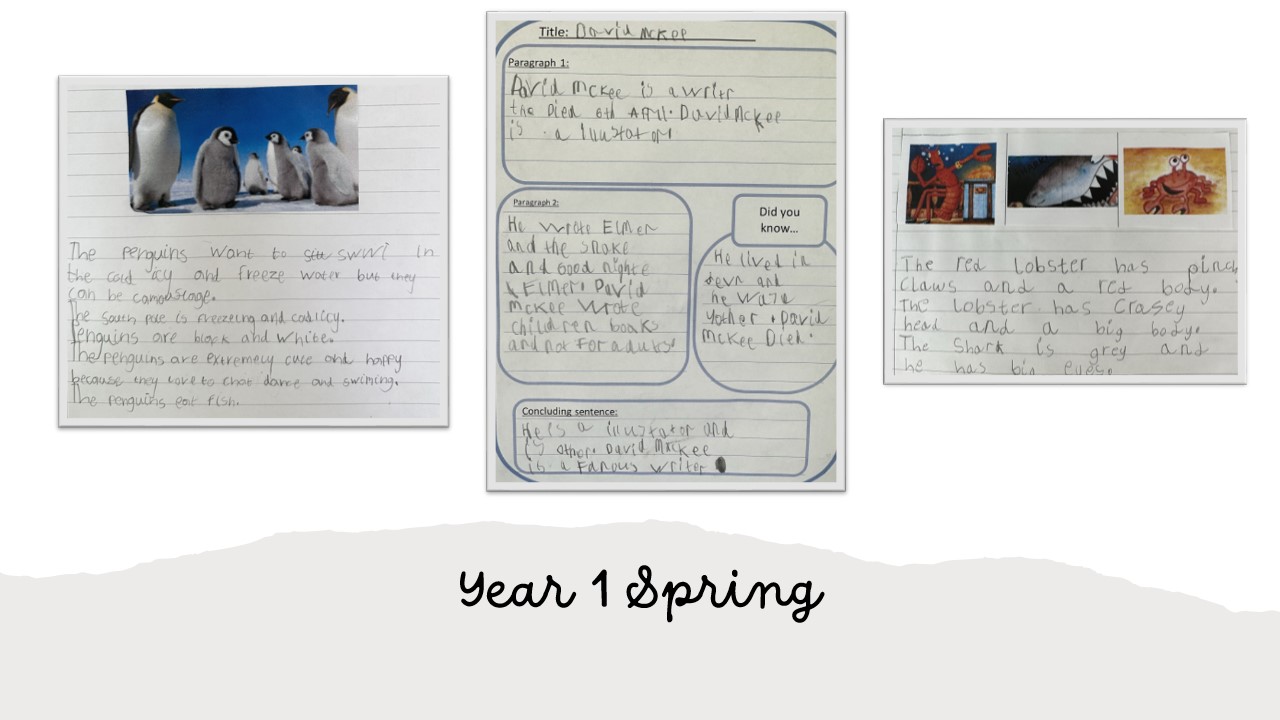 The Penguins want to swwi In
the cold icy and freeze water but they
can be camouslage.
The south pole is freezeing and coalicy.
Penguins are black and white.
The Penguins are extremely cute and happy
because they love to chat dance and swiming.
The penguins eat fish.
Title: David Mckee
Paragraph 1:
David Mckee is a writr
the Died 6th APril. David Mckee
is a
Paragraph 2:
He wrote Elmer
and the snake
and Good nighte
Elmer. David
mckee wrote
children books
and not for adults
Did you
know...
He lived in
devn and
he
David
Mckee Died.
Concluding sentence:
He is a illustator and
is other. David Mckee
is a Famous writer
The red lobster has pinch
Claws and a red body.
The Lobster has Crasey
head and a big body.
The Shark is grey and
he has big eyes.
Year 1 Spring